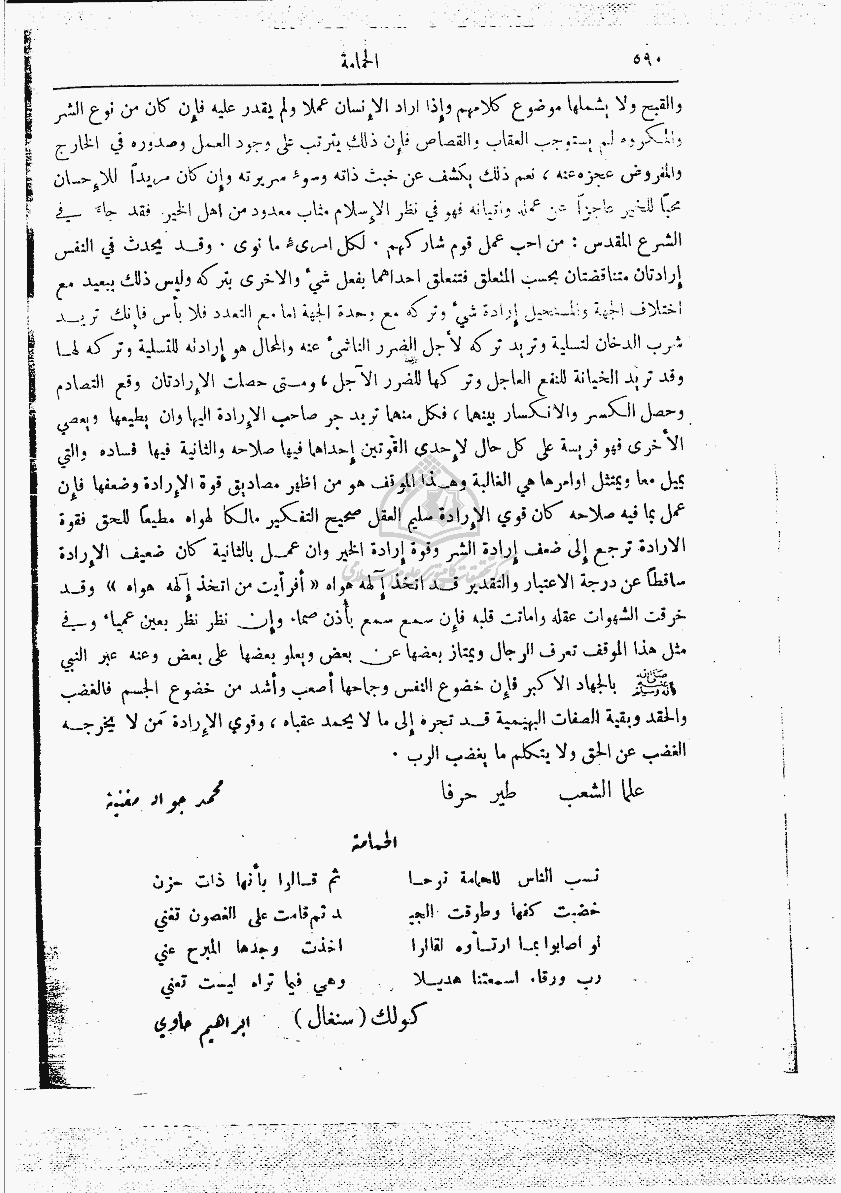 ٥٩٠ الحمامة
والقبح ولا يشملها موضوع كلامهم وإذا اراد الإنسان عملا ولم يقدر عليه فإن كان من نوع الشر
والمكروه لم يستوجب العقاب والقصاص فإن ذلك يترتب على وجود العمل وصدوره في الخارج
والمفروض عجزه عنه ، نعم ذلك يكشف عن خبث ذاته وسوء سريرته وإن كان مريداً للإحسان
محباً للخير عاجزاً عن عمله واتيانه فهو في نظر الإسلام مثاب معدود من اهل الخير. فقد جاء في
الشرع المقدس : من احب عمل قوم شاركهم . لكل امرىء ما نوى . وقد يحدث في النفس
إرادتان متناقضتان بحسب المتعلق فتتعلق احداهما بفعل شيء والاخرى بتركه وليس ذلك ببعيد مع
اختلاف الجهة والمستحيل إرادة شيء وتركه مع وحدة الجهة اما مع التعدد فلا بأس فإنك تريد
شرب الدخان لتسلية وتريد تركه لأجل الضرر الناشىء عنه والمحال هو إرادته للتسلية وتركه لها
وقد تريد الخيانة للنفع العاجل وتركها للضرر الآجل ، ومتى حصلت الإرادتان وقع التصادم
وحصل الكسر والانكسار بينهما ، فكل منهما تريد جر صاحب الإرادة اليها وان يطيعها ويعصي
الأخرى فهو فريسة على كل حال لإحدى القوتين إحداهما فيها صلاحه والثانية فيها فساده والتي
يميل معا ويمتثل اوامرها هي الغالبة وهذا الموقف هو من اظهر مصاديق قوة الإرادة وضعفها فإن
عمل بما فيه صلاحه كان قوي الإرادة سليم العقل صحيح التفكير مالكا لهواه مطيعاً للحق فقوة
الارادة ترجع إلى ضعف إرادة الشر وقوة إرادة الخير وان عمل بالثانية كان ضعيف الإرادة
ساقطاً عن درجة الاعتبار والتقدير قد اتخذ إلهه هواه « أفرأيت من اتخذ إلهه هواه » وقد
خرقت الشهوات عقله واماتت قلبه فإن سمع سمع بأذن صماء وإن نظر نظر بعين عمياء وفي
مثل هذا الموقف تعرف الرجال ويمتاز بعضها عن بعض ويعلو بعضها على بعض وعنه عبر النبي
ﷺ بالجهاد الاكبر فإن خضوع النفس وجماحها أصعب وأشد من خضوع الجسم فالغضب
والحقد وبقية الصفات البهيمية قد تجره إلى ما لا يحمد عقباه ، وقوي الإرادة مَن لا يخرجه
الغضب عن الحق ولا يتكلم ما يغضب الرب .
علما الشعب طير حرفا محمد جواد مغنية
الحمامة
نسب الناس للحمامة نوحا ثم قالوا بأنها ذات حزن
خضبت كفها وطوقت الجيـ ـد ثم قامت على الغصون تغني
لو اصابوا بما ارتأوه لقالوا اخذت وجدها المبرح عني
رب ورقاء اسمعتنا هديلا وهي فيما تراه ليست تعني
كولك (سنغال) ابراهيم حاوي